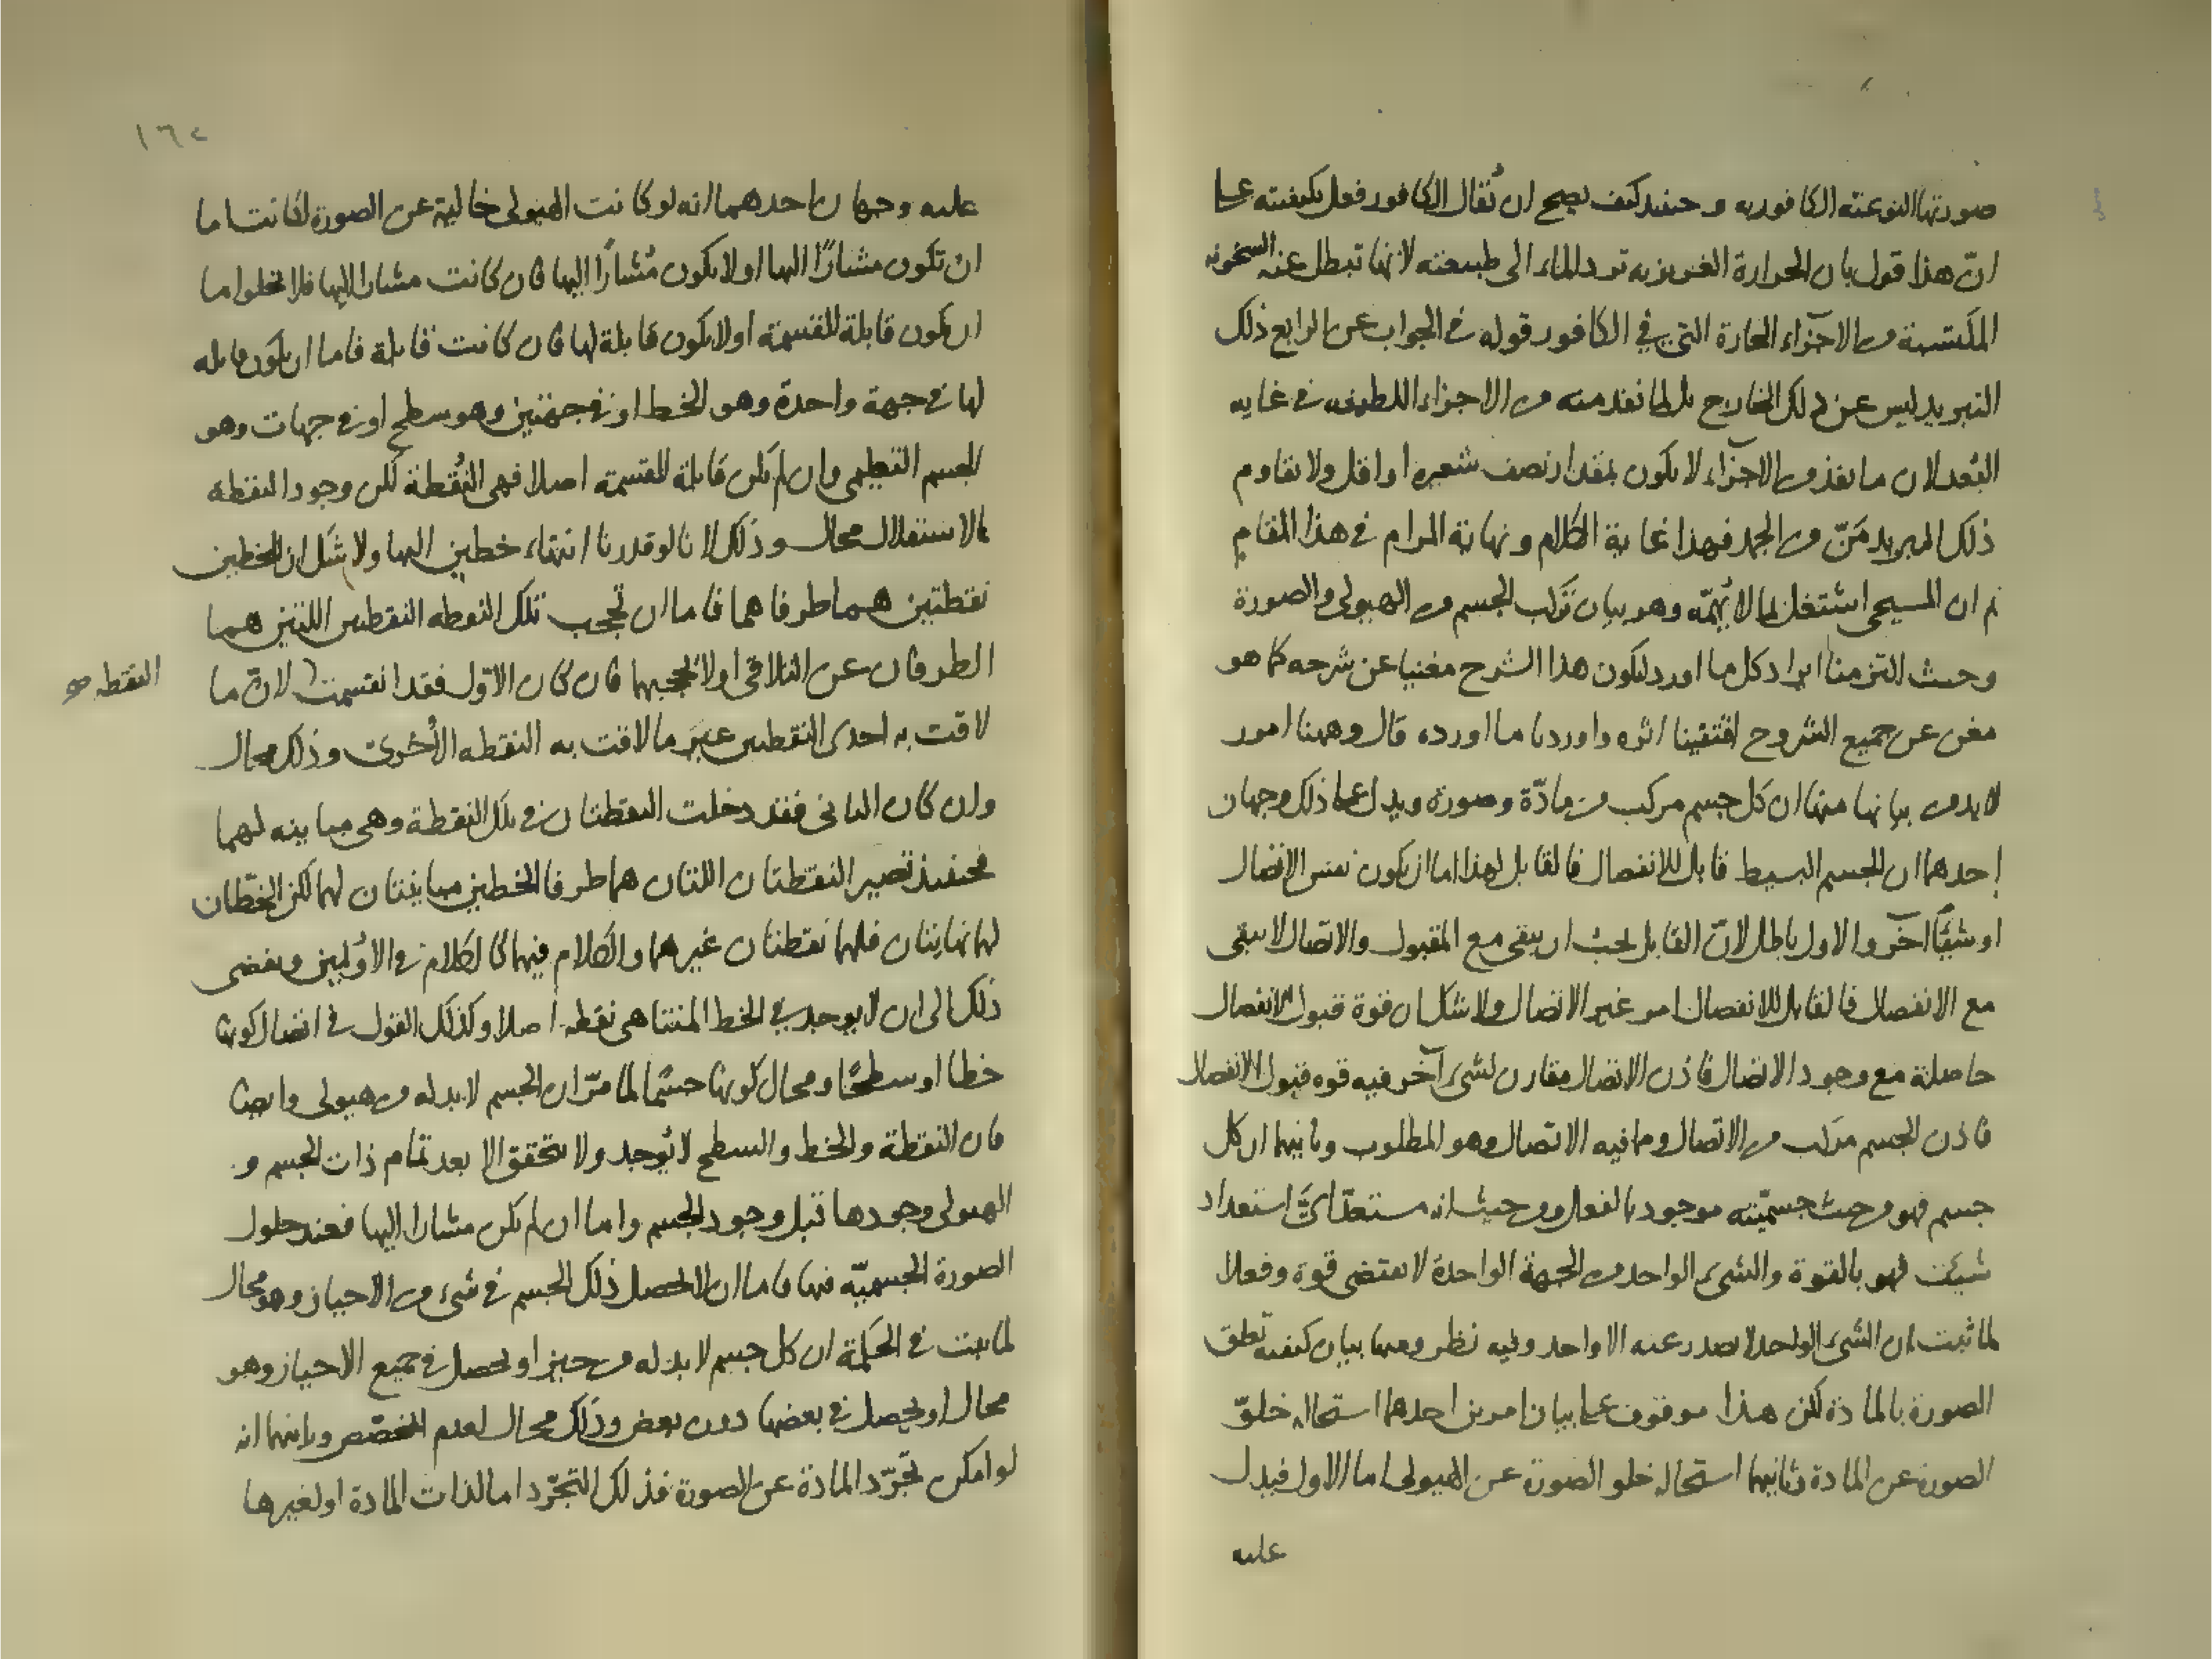 صورتها النوعية الكافورية وحينئذ كيف يصح ان يُقال الكافور فعل بكيفيته على
انّ هذا قول بان الحرارة الغريزية ترد الماء الى طبيعته لانها تبطل عنه السخونه
المكتسبة من الاجزاء الحارة التي في الكافور قوله في الجواب عن الرابع ذلك
التبريد ليس عن ذلك الخارج بل لما نفذ منه من الاجزاء اللطيفه في غايه
البُعد لان ما ينفذ من الاجزاء لا يكون بمقدار نصف شعيره او اقل ولا يقاوم
ذلك المبريد مَنّ من الجمد فهذا غاية الكلام ونهاية المرام في هذا المقام
ثم ان المسيحي اشتغل بما لا يُهمّه وهو بيان تركب الجسم من الهيولى والصورة
وحيث التزمنا ايراد كل ما اورد ليكون هذا الشرح مغنيا عن شرحه كما هو
مغن عن جميع الشروح اقتفينا اثره واوردنا ما اورده قال وههنا امور
لا بد من بيانها منها ان كل جسم مركب من مادّة وصورة ويدل على ذلك وجهان
احدهما ان الجسم البسيط قابل للانفصال فالقابل لهذا اما ان يكون نفس الاتصال
او شيئًا آخر والاول باطل لانّ القابل يجب ان يبقى مع المقبول والاتصال لا يبقى
مع الانفصال فالقابل للانفصال امر غير الاتصال ولا شك ان قوة قبول الانفصال
حاصلة مع وجود الاتصال فاذن الاتصال مقارن لشيء آخر فيه قوه قبول الانفصال
فاذن الجسم مركب من الاتصال وما فيه الاتصال وهو المطلوب وثانيهما ان كل
جسم فهو من حيث جسميّته موجود بالفعل ومن حيث انه مستعدّ ايَّ استعداد
شئت فهو بالقوة والشيء الواحد من الجهة الواحدة لا يقتضي قوة وفعلا
لما ثبت ان الشيء الواحد لا يصدر عنه الا واحد وفيه نظر ومنها بيان كيفيه تعلق
الصورة بالمادة لكن هذا موقوف على بيان امرين احدهما استحاله خلوّ
الصورة عن المادة وثانيهما استحاله خلو الصورة عن الهيولى اما الاول فيدل
عليه
١٦٢
عليه وجهان احدهما انه لو كانت الهيولى خالية عن الصورة لكانت اما
ان تكون مشارًا اليها او لا يكون مُشارًا اليها فان كانت مشارا اليها فلا تخلوا اما
ان يكون قابلة للقسمة او لا يكون قابلة لها فان كانت قابلة فاما ان يكون قابله
لها في جهة واحدة وهو الخط او في جهتين وهو سطح او في جهات وهو
الجسم التعليمي وان لم يكن قابلة للقسمة اصلا فهي النُقطة لكن وجود النقطه
بالاستقلال محال وذلك لانا لو قدرنا انتهاء خطين اليها ولا شك ان للخطين
نقطتين هما طرفاهما فاما ان تحجب تلك النقطه النقطتين اللتين هما
الطرفان عن التلاقي او لا تحجبهما فان كان الاوّل فقد انقسمت لانّ ما
النقطه صح
لاقت به احدى النقطتين غير ما لاقت به النقطه الأخرى وذلك محال
وان كان الثاني فقد دخلت النقطتان في تلك النقطة وهي مباينه لهما
فحينئذ تصير النقطتان اللتان هما طرفا الخطين مباينتان لهما لكن الخطّان
لهما نهايتان فلهما نقطتان غيرهما والكلام فيهما كالكلام في الاوليين ويفضي
ذلك الى ان لا يوجد في الخط المتناهي نقطه اصلا وكذلك القول في اتصال كونها
خطا او سطحًا ومحال كونها جسمًا لما مرّ ان الجسم لا بد له من هيولى وايضا
فان النقطة والخط والسطح لا يُوجد ولا يتحقق الا بعد تمام ذات الجسم و
الهيولى وجودها قبل وجود الجسم واما ان لم يكن مشارا اليها فعند حلول
الصورة الجسميّه فيها فاما ان لا يحصل ذلك الجسم في شيء من الاحياز وهو محال
لما ثبت في الحكمة ان كل جسم لا بد له من حيز او يحصل في جميع الاحياز وهو
محال او يحصل في بعضها دون بعض وذلك محال لعدم المخصّص وثانيهما انه
لو امكن تجرّد المادة عن الصورة فذلك التجرّد اما لذات المادة او لغيرها